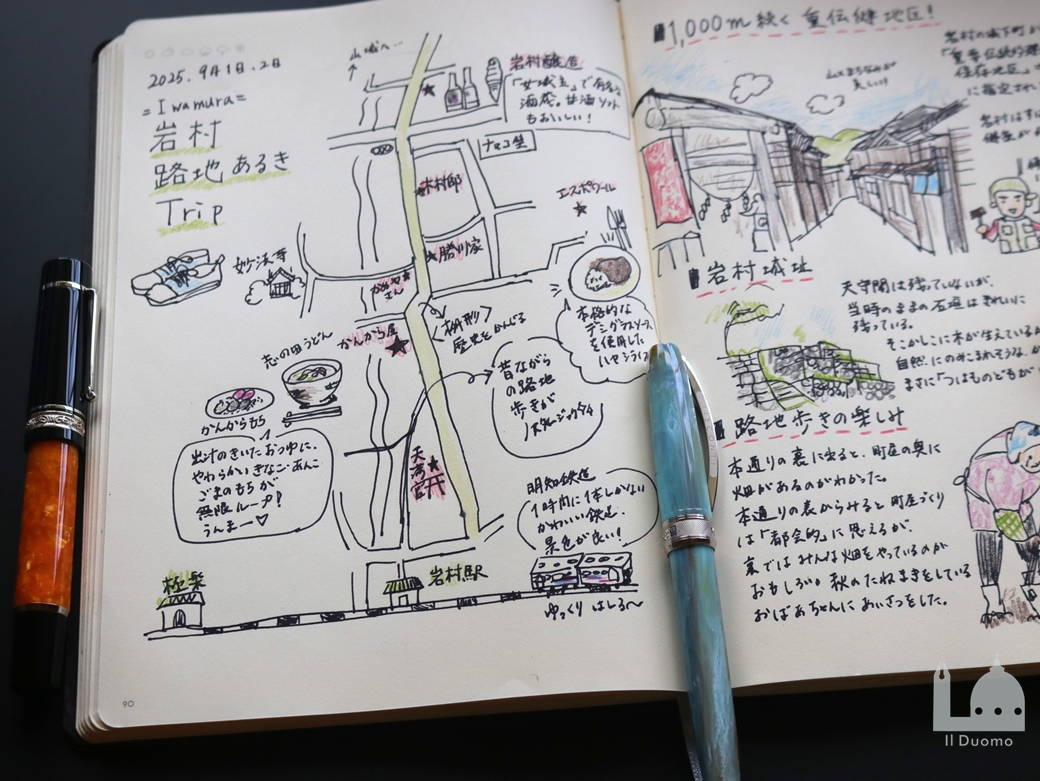 2025. 9月1日.2日
=Iwamura=
岩村
路地あるき
Trip
山城へ…
妙法寺
志の田うどん
かんからもち
出汁のきいたおつゆに、
やわらかいきなこ・あんこ
ごまのもちが
無限ループ!
うんまー♡
極楽
岩村醸造
「女城主」で有名な
酒蔵。甘酒ソフト
もおいしい!
ナマコ壁
木村邸
勝川家
かめや
さん
かんから屋
〈枡形〉
歴史をかんじる
エスポワール
本格的な
デミグラスソース
を使用した
ハヤシライス
昔ながら
の路地
歩きが
ノスタルジックタイム
天満宮
明知鉄道
1時間に1本しかない
かわいい鉄道。
景色が良い!
岩村駅
ゆっくり はしる〜
90
1,000m続く 重伝建地区!
岩村の城下町が
「重要伝統的建
保存地区」
に指定され
山とまちなみが
美しい!!
岩村城址
天守閣は残っていないが、
当時のままの石垣はきれいに
残っている。
そこかしこに木が生えている
自然にのみこまれそうな、
まさに「つはものどもが
路地歩きの楽しみ
本通りの裏に出ると、町屋の奥に
畑があるのがわかった。
本通りの表からみると町屋づくり
は「都会的」に思えるが、
裏ではみんな畑をやっているのが
おもしろい。秋のたねまきをしている
おばあちゃんにあいさつをした。
Il Duomo